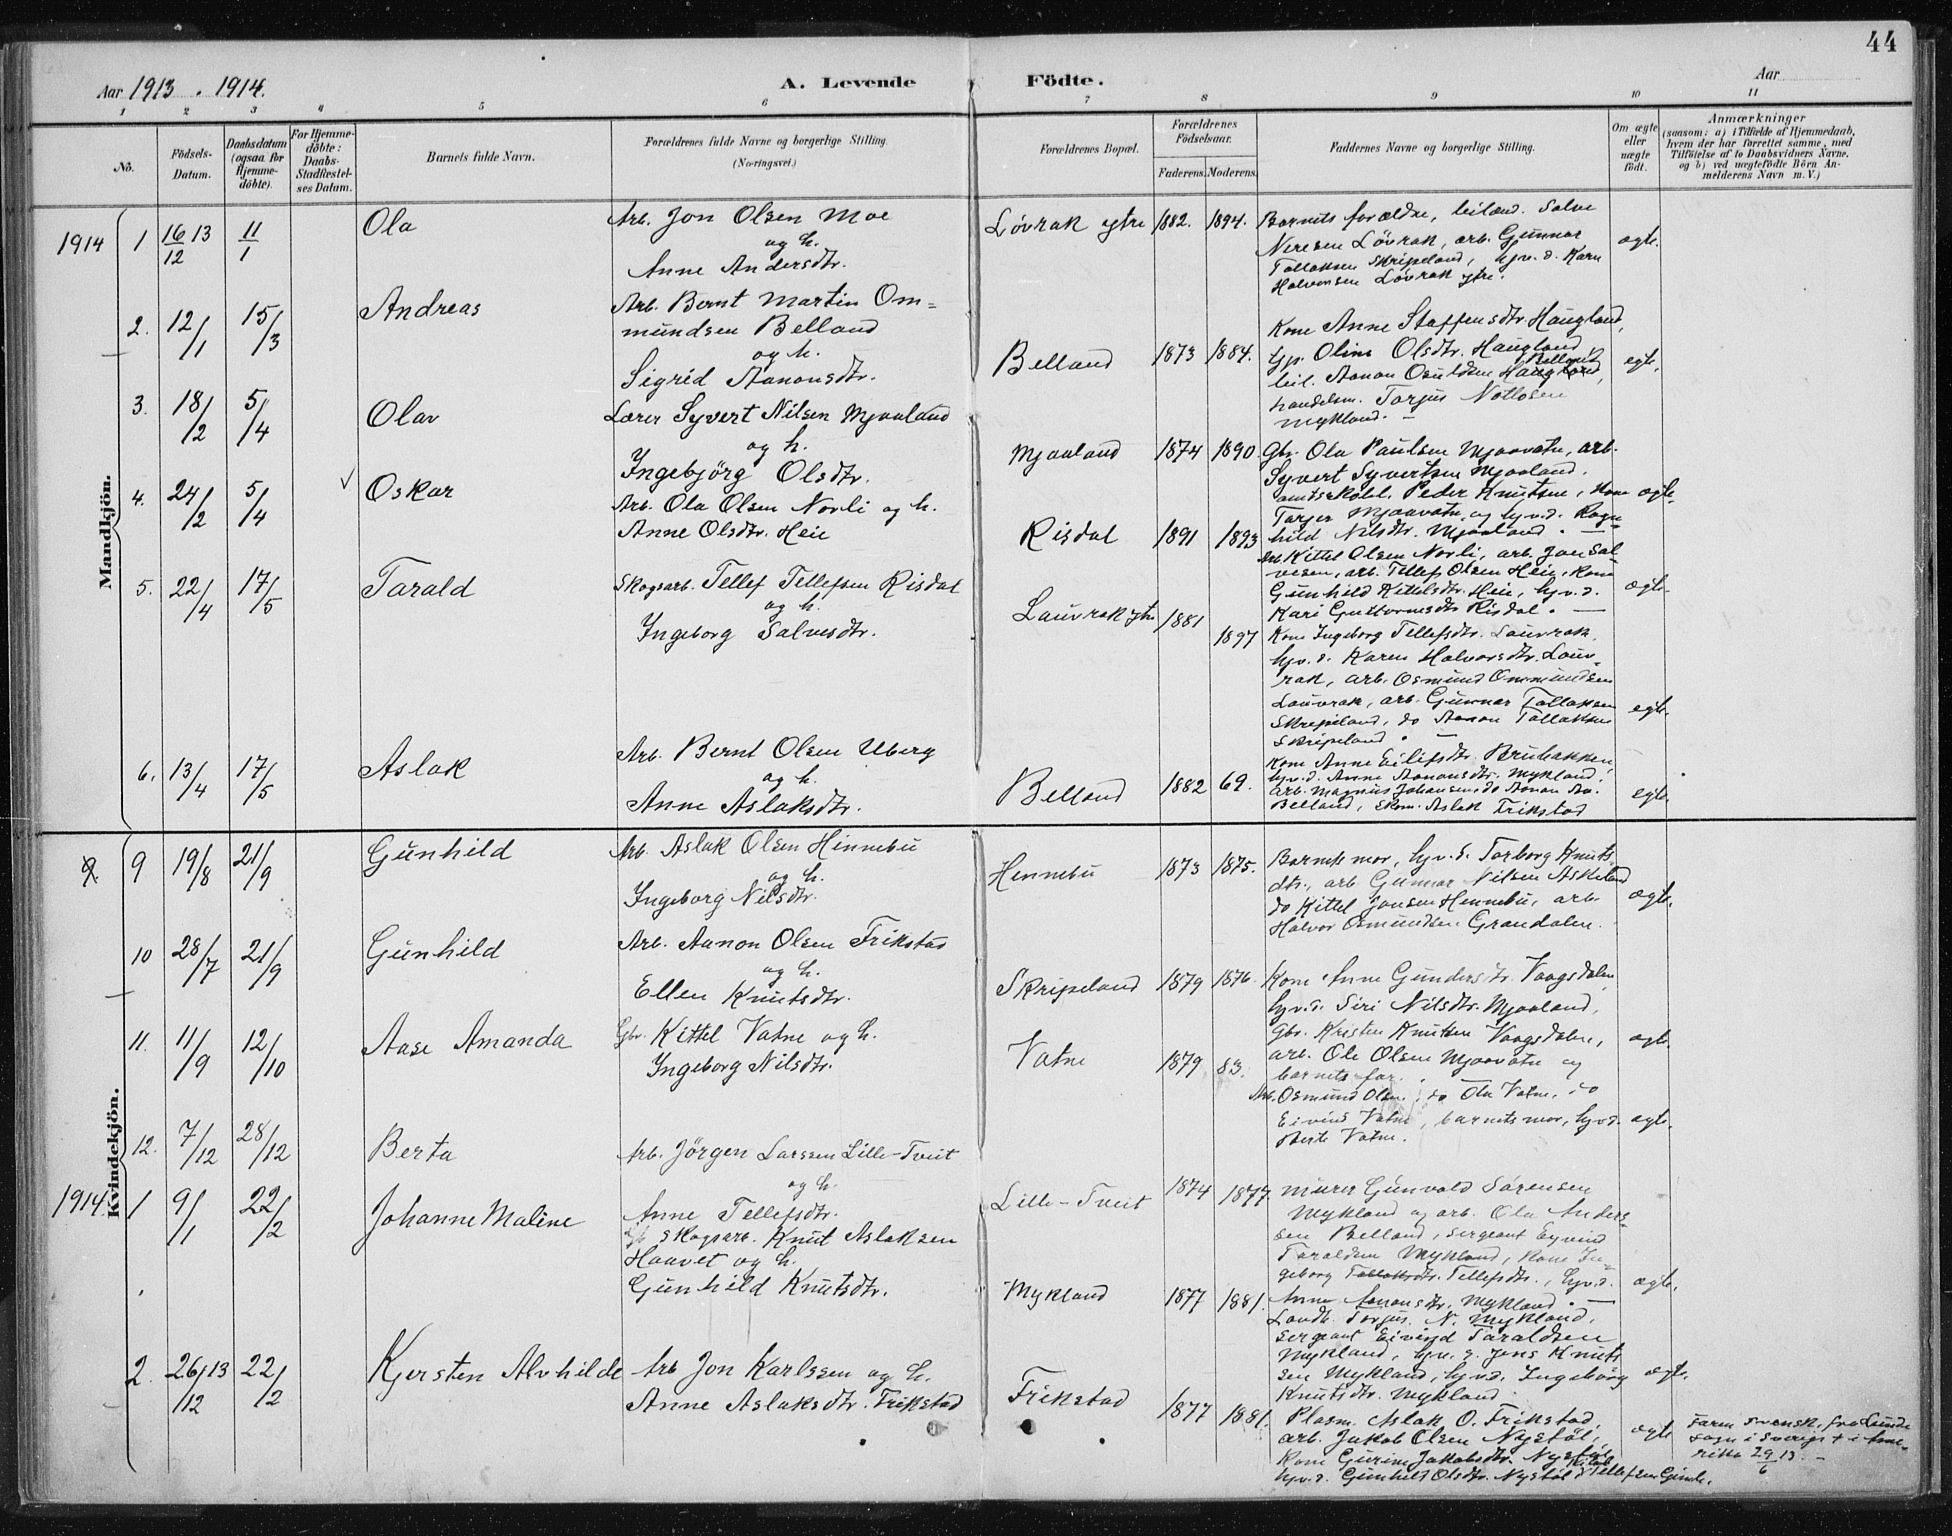 44
Aar 1913. 1914.
A. Levende Födte.
Aar
1 2 3 4 5 6 7 8 9 10 11
No.
Födsels-Datum.
Daabsdatum (ogsaa for Hjemme-döbte).
For Hjemme-döbte: Daabs-Stadfæstel-ses Datum.
Barnets fulde Navn.
Forældrenes fulde Navne og borgerlige Stilling.
(No-ringsvei.)
Forældrenes Bopæl.
Forældrenes Födselsaar.
Faderens. Moderens.
Faddernes Navne og borgerlige Stilling.
Om ægte eller uægte födt.
Anmærkninger
(saasom: a) i Tilfælde af Hjemmedaab,
hvem der har forrettet samme, med
Tilföielse af to Daabsvidners Navne,
og b) ved uægtefödte Börn An-
melderens Navn m. V.)
Mandkjön.
1914 1 16/12 13 11/1 Ola
Arb. Jon Olsen Moe
og h.
Anne Andersdtr.
Lövrak ytre 1882. 1894.
Barnets forældre, leilænd. Salve
Neresen Lövrak, arb. Gunnar
Tallaksen Skripeland, hjv. d. Karn
Halvorsen Lövrak ytre.
ægte.
2. 12/1 15/3 Andreas
Arb. Bernt Martin Om=
mundsen Belland
og h.
Sigrid Aanonsdtr.
Belland 1873 1884.
Kone Anne Staffensdtr. Haugland,
hjv. Oline Olsdtr. Haugland,
Belland
leil. Aanon Osuldsen Haugland,
handelsm. Torjus Notlosen
Mykland. —
egte.
3. 18/2 5/4 Olav
Lærer Syvert Nilsen Mjaaland
og h.
Ingebjörg Olsdtr.
Mjaaland 1874 1890
Gbr. Ola Paulsen Mjaavatn, arb.
Syvert Syvertsen Mjaaland,
amtsskolel. Peder Knutsen, Kone
Torjer Mjaavatn og hjv. d. Ragn-
hild Nilsdtr. Mjaaland. —
ægte.
4. 24/2 5/4 √ Oskar
Arb. Ola Olsen Norli og h.
Anne Olsdtr. Heie
Risdal 1891 1893
Arb. Kittel Olsen Norli, arb. Jon Sal-
vesen, arb. Tellef Olsen Heie, kone
Gunhild Kittelsdtr. Heie, hjv. d.
Kari Guttormsdtr. Risdal. —
ægte.
5. 22/4 17/5 Tarald
Skogsarb. Tellef Tellefsen Risdal
og h.
Ingeborg Salvesdtr.
Lauvrak ytre 1881 1897
Kone Ingeborg Tellefsdtr. Lauvrak,
hjv. d. Karen Halvorsdtr. Lauv-
rak, arb. Osmund Ommundsen
Lauvrak, arb. Gunnar Tallaksen
Skripeland, do Aanon Tallaksen
Skripeland. —
egte.
6. 13/4 17/5 Aslak
Arb. Bernt Olsen Uberg
og h.
Anne Aslaksdtr.
Belland 1882 69.
Kone Anne Eilefsdtr. Brubakken,
hjv. d. Anne Aanonsdtr. Mykland,
arb. Magnus Johansen, do Aanon Aa.
Belland, Skom. Aslak Frikstad
egte.
Kvindekjön.
9 19/8 21/9 Gunhild
Arb. Aslak Olsen Hinnebu
og h.
Ingeborg Nilsdtr.
Hennebu 1873 1875.
Barnets mor, hjv. d. Torborg Knuts-
dtr., arb. Gunnar Nilsen Askeland
do Kittel Jonsen Hennebu, arb.
Halvor Osmundsen Grandalen.
ægte.
10 28/7 21/9 Gunhild
Arb. Aanon Olsen Frikstad
og h.
Ellen Knutsdtr.
Skripeland 1879 1876.
Kone Anne Gundersdtr. Vaagsdalen,
hjv. d. Siri Nilsdtr. Mjaaland,
Gbr. Kristen Knutsen Vaagsdalen,
arb. Ole Olsen Mjaavatn og
barnets far.
ægte.
11. 11/9 12/10 Aase Amanda
Gbr. Kittel Vatne og h.
Ingeborg Nilsdtr.
Vatne 1879 83.
Arb. Osmund Olsen, do Ola Vatne, do
Eivind Vatne, barnets mor, hjv. d.
Berte Vatne.
ægte.
12. 7/12 28/12 Berta
Arb. Jörgen Larssen Lille-Tveit
og h.
Anne Tellefsdtr.
Lille-Tveit 1874 1877
Murer Gunvald Sörensen
Mykland og arb. Ola Anders-
sen Belland, sergeant Eyvind
Taraldsen Mykland, kone In-
geborg Tellefsdtr., hjv. d.
Anne Aanonsdtr. Mykland. —
ægte.
1914. 1 9/1 22/2 Johanne Maline
Skogsarb. Knut Aslaksen
Haavet og h.
Gunhild Knutsdtr.
Mykland 1877 1881.
Landh. Torjus N. Mykland,
sergeant Eivind Taraldsen
Mykland, hjv. d. Jens Knut-
sen Mykland, hjv. d. Ingeborg
Knutsdtr. Mykland.
ægte.
2. 26/12 13 22/2 Kjersten Alvhilde
Arb. Jon Karlssen og h.
Anne Aslaksdtr. Frikstad
Frikstad 1877 1881.
Plasm. Aslak O. Frikstad,
arb. Jakob Olsen Nystöl,
Kone Gurine Jakobsdtr. Nystöl,
hjv. d. Gunhild Olsdtr. Nystöl & Kittel Tellefsen Gimle.
ægte
Faren svensk, fra Lunde
sogn i Sverige + i Ame-
rika 29/6 13. —